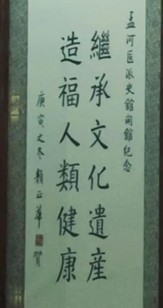 孟河医派史館開館紀念
繼承文化遺產
造福人類健康
庚寅之冬 賴正華 賀